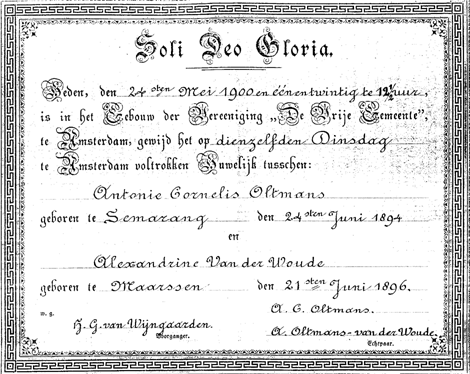 Soli Deo Gloria.
Heden, den 24sten Mei 1900 en éénentwintig te 12½ uur,
is in het Gebouw der Vereeniging „De Vrije Gemeente”,
te Amsterdam, gewijd het op dienzelfden Dinsdag
te Amsterdam voltrokken Huwelijk tusschen:
Antonie Cornelis Oltmans
geboren te Semarang den 24sten Juni 1894
en
Alexandrine Van der Woude
geboren te Maarssen den 21sten Juni 1896.
w. g.
H. G. van Wijngaarden.
Voorganger.
A. C. Oltmans.
A. Oltmans-van der Woude.
Echtpaar.